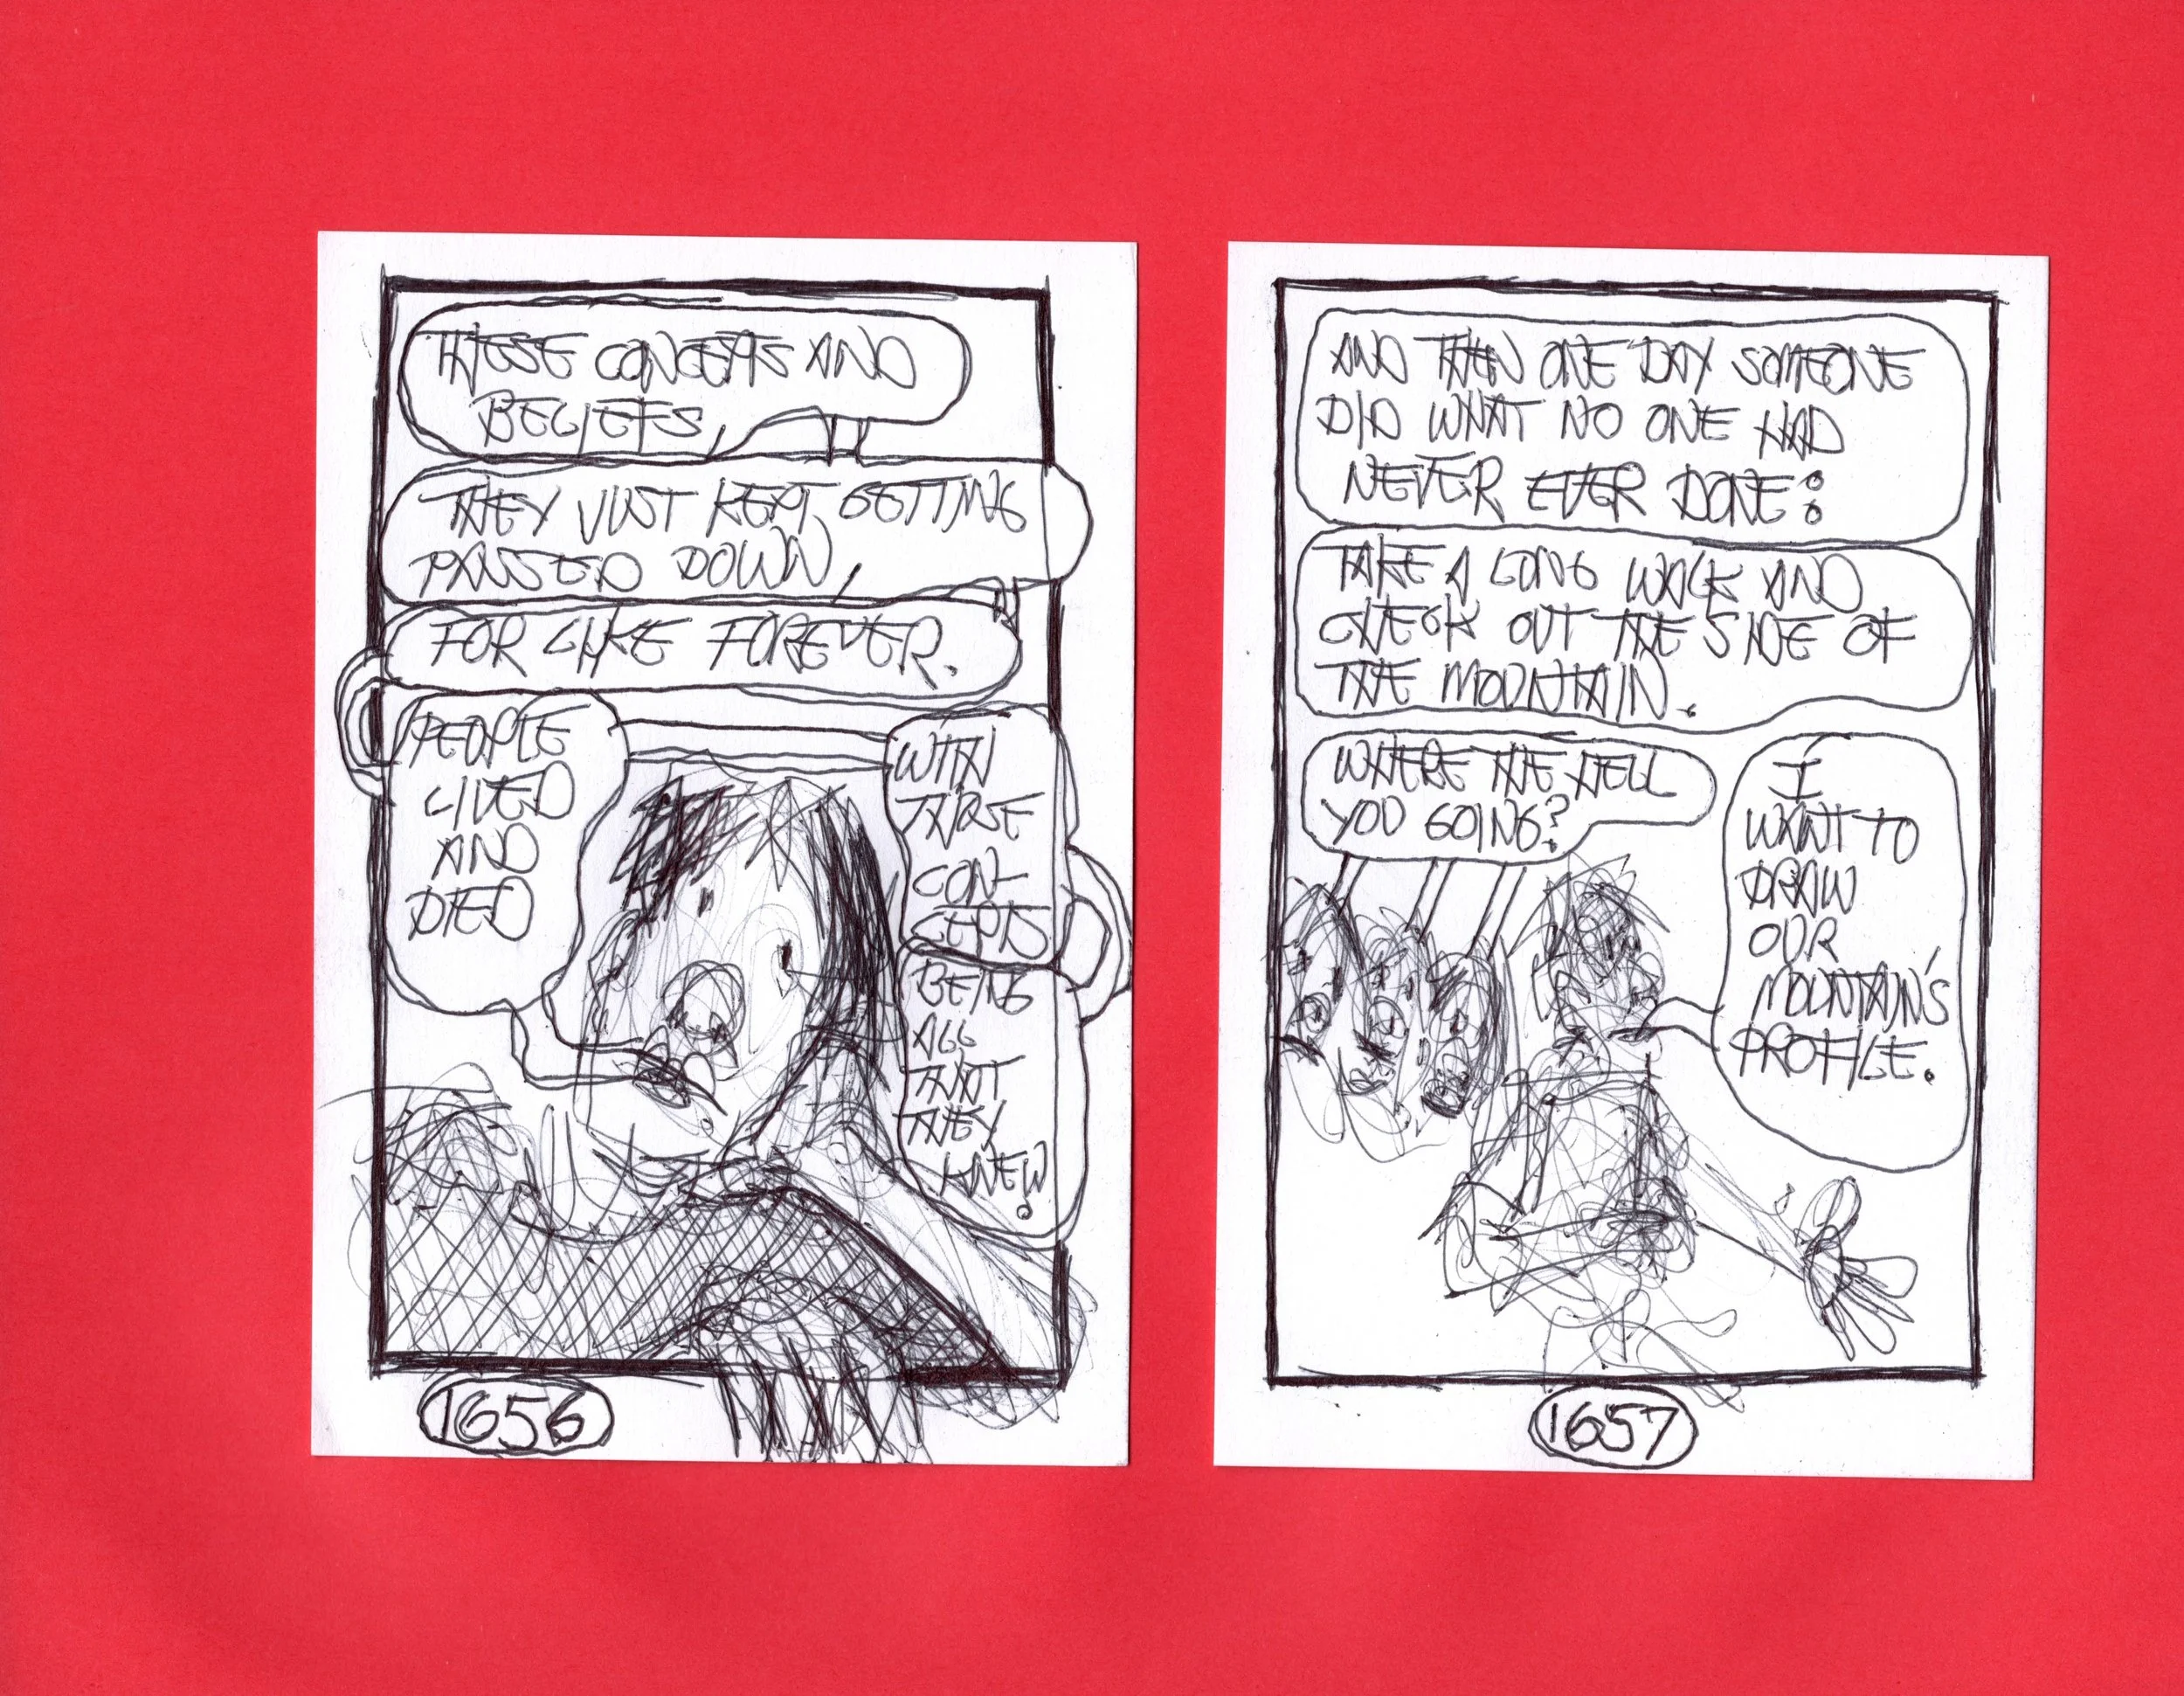 THESE CONCEPTS AND
BELIEFS,
THEY JUST KEPT GETTING
PASSED DOWN,
FOR LIKE FOREVER.
PEOPLE
LIVED
AND
DIED
WITH
THESE
CON-
CEPTS
BEING
ALL
THAT
THEY
KNEW.
1656
AND THEN ONE DAY SOMEONE
DID WHAT NO ONE HAD
NEVER EVER DONE:
TAKE A LONG WALK AND
CHECK OUT THE SIDE OF
THE MOUNTAIN.
WHERE THE HELL
YOU GOING?
I
WANT TO
DRAW
OUR
MOUNTAIN'S
PROFILE.
1657